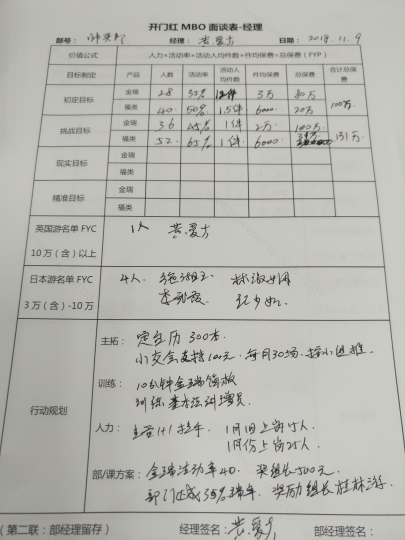 开门红 MBO 面谈表-经理
部号： 经理： 黄爱方 日期： 2018.11.9
价值公式 人力×活动率×活动人均件数×件均保费=总保费（FYP）
目标制定 产品 人数 活动率 活动人均件数 件均保费 总保费 合计总保费
初定目标 金瑞 28 35% 3万 80万 100万
福类 40 50% 1.5件 6000 20万
挑战目标 金瑞 36 45% 1件 2万 100万 131万
福类 52 65% 1件 6000
现实目标 金瑞
福类
精准目标 金瑞
福类
英国游名单 FYC 10万（含）以上 1人 黄爱方
日本游名单 FYC 3万（含）-10万 4人、
行动规划
主拓： 定生历 300本.
小交会直接100元, 每月30场,
训练： 10分钟金瑞简报
训练基本法讲增员
人力： 主管1+1
1月份上岗25人.
部/课方案： 金瑞活动率40. 奖组长500元.
部门达成35% 奖励组长桂林游.
（第二联：部经理留存） 经理签名： 黄爱方 部经理签名：